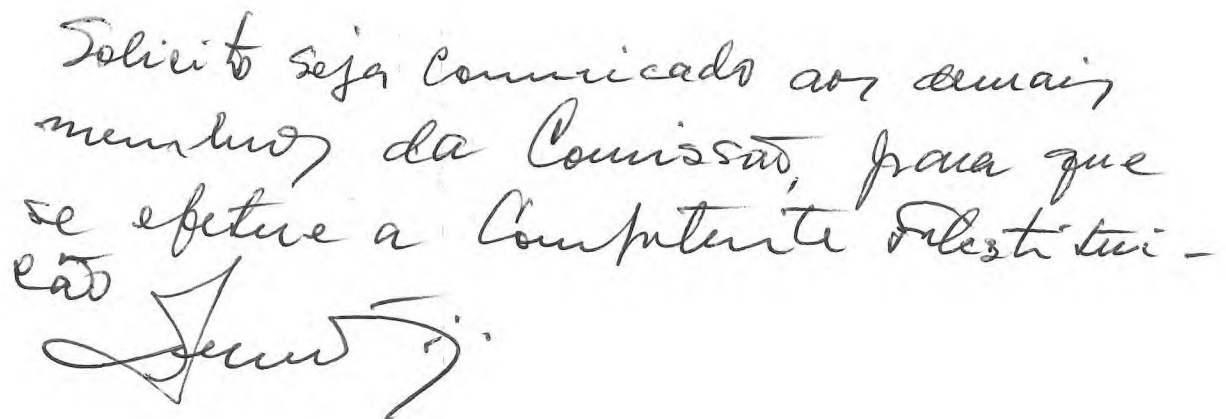 Solicito seja comunicado aos demais
membros da Comissão, para que
se efetue a competente substitui-
ção